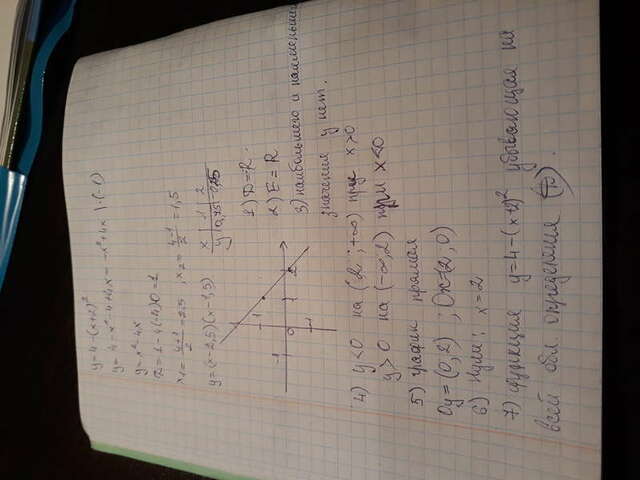 y=4-(x+2)²
y=4-x²-4+4x=-x²+4x |·(-1)
y=x²-4x
D=1-4(-4)0=1
x₁=(4+1)/2=2,5, x₂=(4-1)/2=1,5
y=(x-2,5)(x-1,5)
x | 1 | 2
y | 0,75 |
-1 0 1 2
1
-1
1) D=R.
2) E=R
3) наибольшего и наименьшего
значения y нет.
4) y<0 на (2; +∞) при x>0
y>0 на (-∞; 2) при x<0
5) график прямая
Oy=(0;2) ; Ox=(2;0)
6) нули: x=2
7) функция y=4-(x+2)² убывающая на
всей обл определения (R).